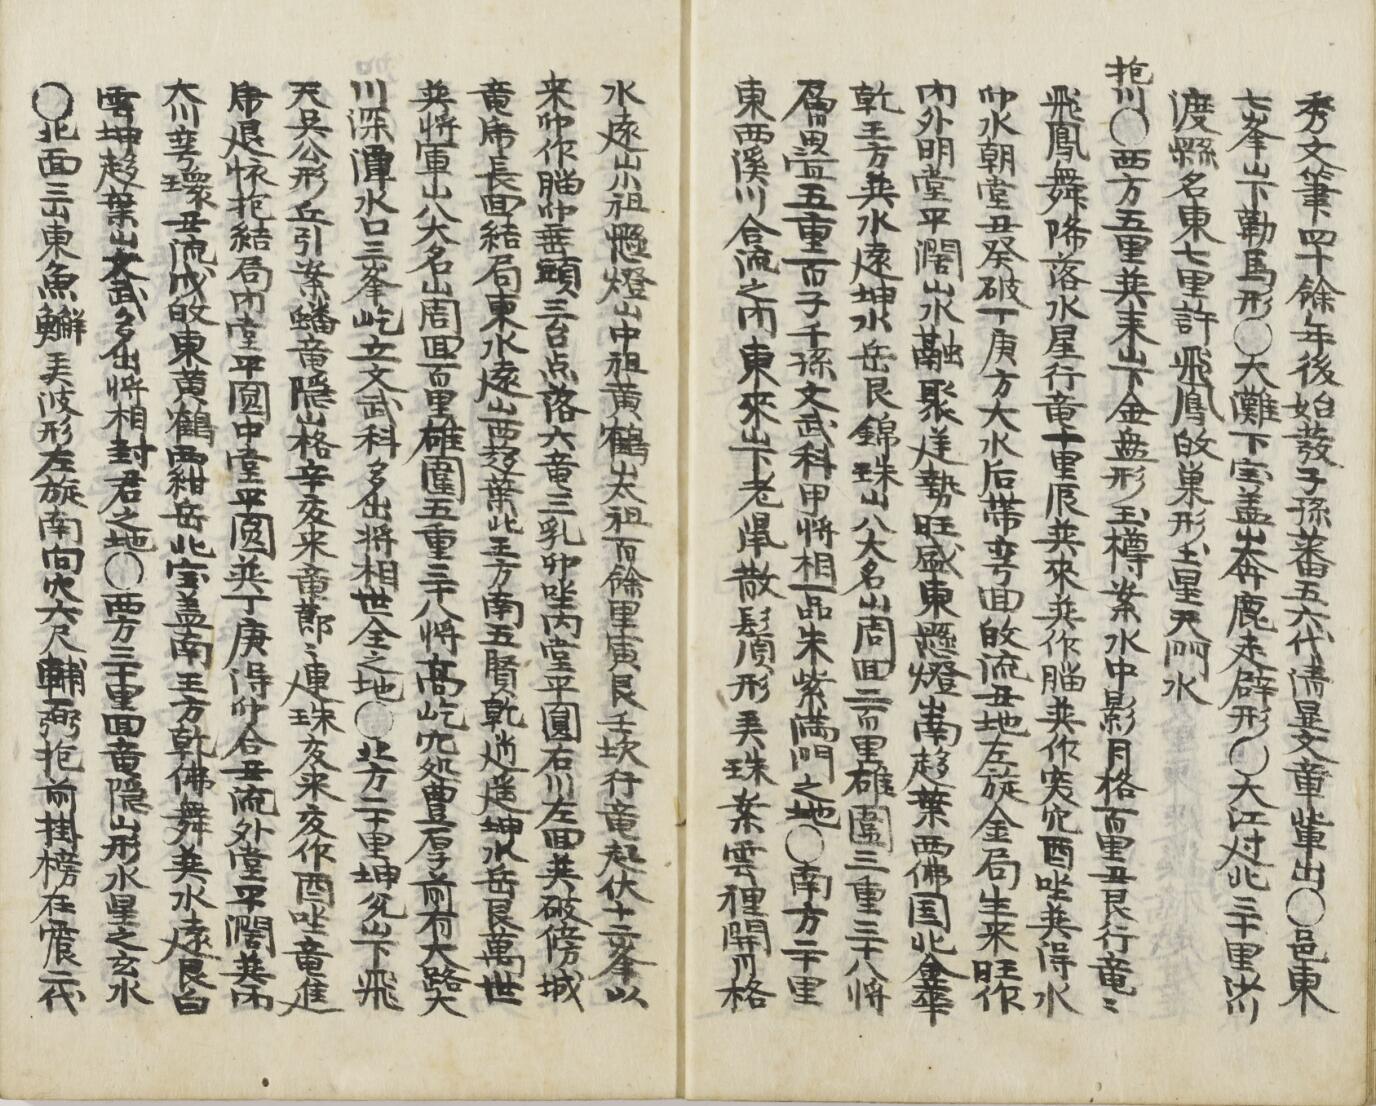 秀文筆四十餘年後始發子孫蕃五六代淸显文章輩出〇邑東
七峯山下勒馬形〇大灘下宝盖山奔鹿走壁形〇大江村北三十里
渡縣名東七里許飛鳳故巢形土星天門水
抱川〇西方五里巽來山下金盘形玉樽案水中影月格百里丑艮行竜〻
飛鳳舞降落水星行竜十里辰巽來巽作腦巽作突穴酉坐巽得水
卯水朝堂丑癸破丁庚方大水后帶弯回故流丑地左旋金局生来旺作
内外明堂平濶山水融聚逆勢旺盛東懸燈山南趍葉西佛国北金華
乾壬方巽水遠坤水岳艮錦珠山八大名山周回二百里雄圍三重三十八將
五重一百子千孫文武科甲將相一品朱紫滿門之地〇南方二十里
東西溪川合流之内東來山下老散形美珠案雲裡開月格
水遠山小祖懸燈山中祖黄鶴山太祖百餘里寅艮壬坎行竜起伏十二峯以
来卯作腦卯垂頭三台点落六竜三乳卯坐丙堂平圓右川左回巽破傍城
竜席長回結局東水遠山西趍葉北壬方南五曆乾逍遥坤水岳艮萬世
巽將軍山八大名山周回百里雄圍五重三十八將高屹穴処豊厚前有大路大
川深潭水口三峯屹立文武科多出將相世全之地〇北方二十里坤兌山下飛
天吳公形丘引案蟠竜隱山格辛亥来竜〻連珠亥来亥作酉坐竜進
虎退怀抱結局内堂平圓中堂平圓巽丁庚得卯合丑流外堂平濶巽内
大川弯環丑流戌故東黄鶴西紺岳北宝盖南壬方乾佛舞巽水遠艮白
雲坤趍葉山文武多出將相封君之地〇西方三十里回竜隱山形水星之玄水
〇北面三山東魚形左旋南向穴六尺輔弼抱前掛榜在震二代